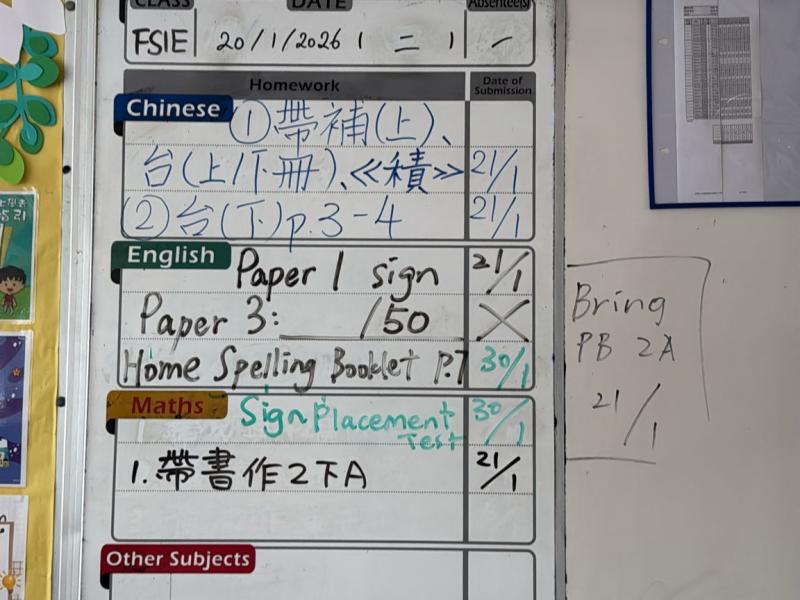 CLASS DATE Absentee(s)
FSIE 20/1/2026 二
Homework Date of Submission
Chinese ①帶補(上)、
台(上/下冊)、《積》 21/1
②台(下)p.3-4 21/1
English Paper 1 sign 21/1
Paper 3: ____/50 X
Home Spelling Booklet P.7 30/1
Maths Sign Placement Test 30/1
1. 帶書作2下A 21/1
Other Subjects
Bring
PB 2A
21/1
指引